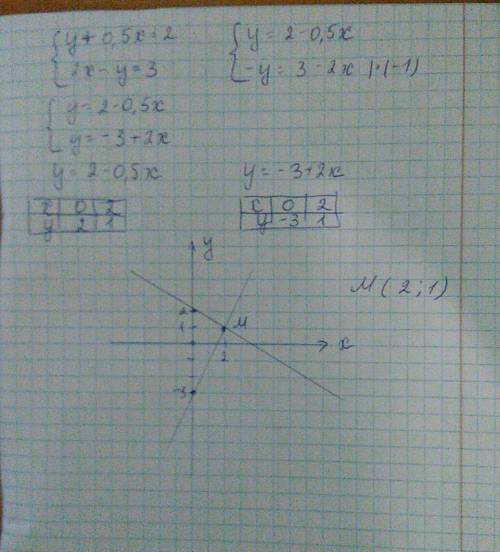 { y + 0,5x = 2
2x - y = 3
{ y = 2 - 0,5x
-y = 3 - 2x |·(-1)
{ y = 2 - 0,5x
y = -3 + 2x
y = 2 - 0,5x
x 0 2
y 2 1
y = -3 + 2x
x 0 2
y -3 1
y
2
1
M
2
x
-3
M(2;1)